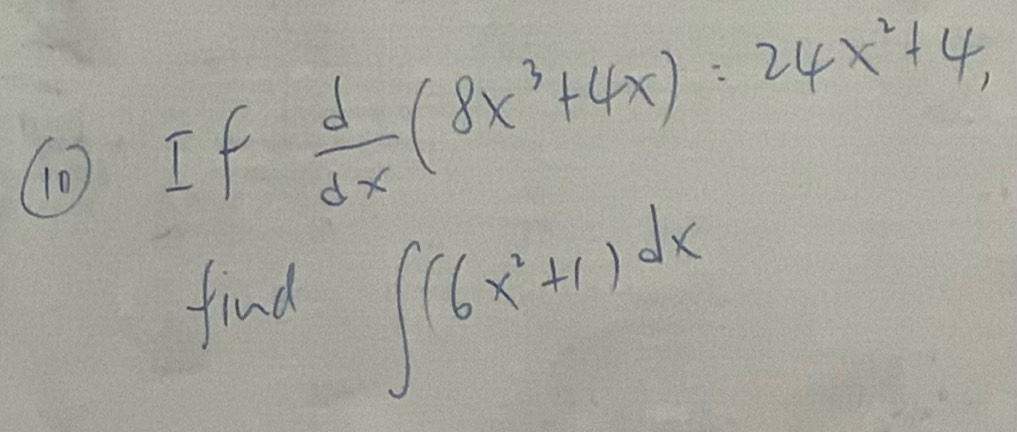 ⑩ If d/dx (8x³+4x) = 24x²+4,
find ∫(6x²+1) dx